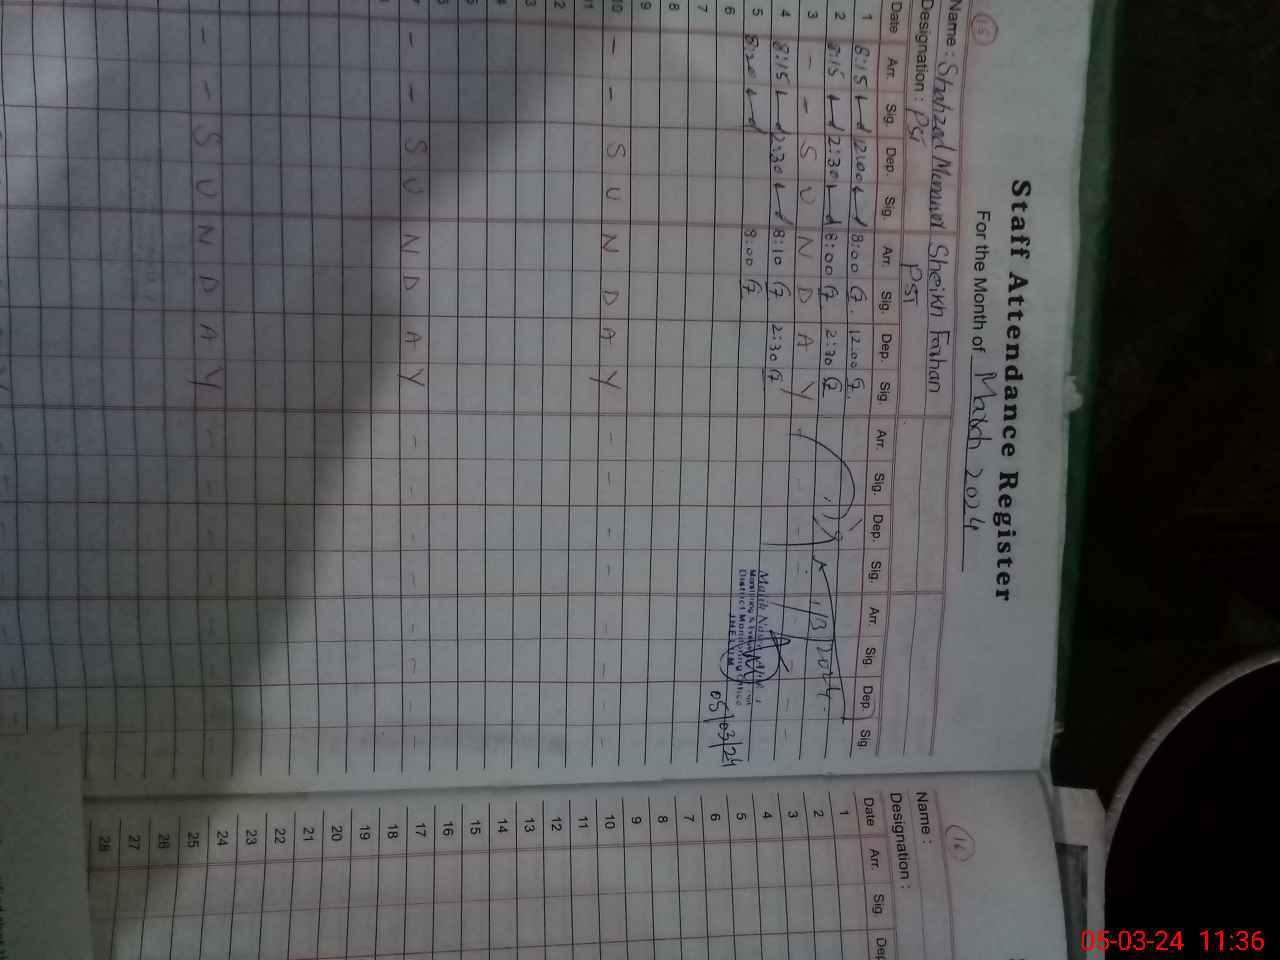 15
Staff Attendance Register
For the Month of March 2024
Name : Shahzad Sheikh Farhan
Designation : PST PST
Date Arr. Sig. Dep. Sig. Arr. Sig. Dep. Sig. Arr. Sig. Dep. Sig. Arr. Sig. Dep. Sig.
1 8:15 12:00 8:00 12:00
2 8:15 2:30 8:00 2:30
3 - - S U N D A Y - - - - - -
4 8:15 2:30 8:10 2:30
5 8:20 8:00
6
7
8
9
10 - - S U N D A Y - - - - - - -
11
- - S U N D A Y - - - - - - -
- - S U N D A Y - - - - - - -
/3/2024
Malik
District Monitoring Office
JHELUM
05/03/24
16
Name :
Designation :
Date Arr. Sig. Dep
1
2
3
4
5
6
7
8
9
10
11
12
13
14
15
16
17
18
19
20
21
22
23
24
25
26
27
28
05-03-24 11:36